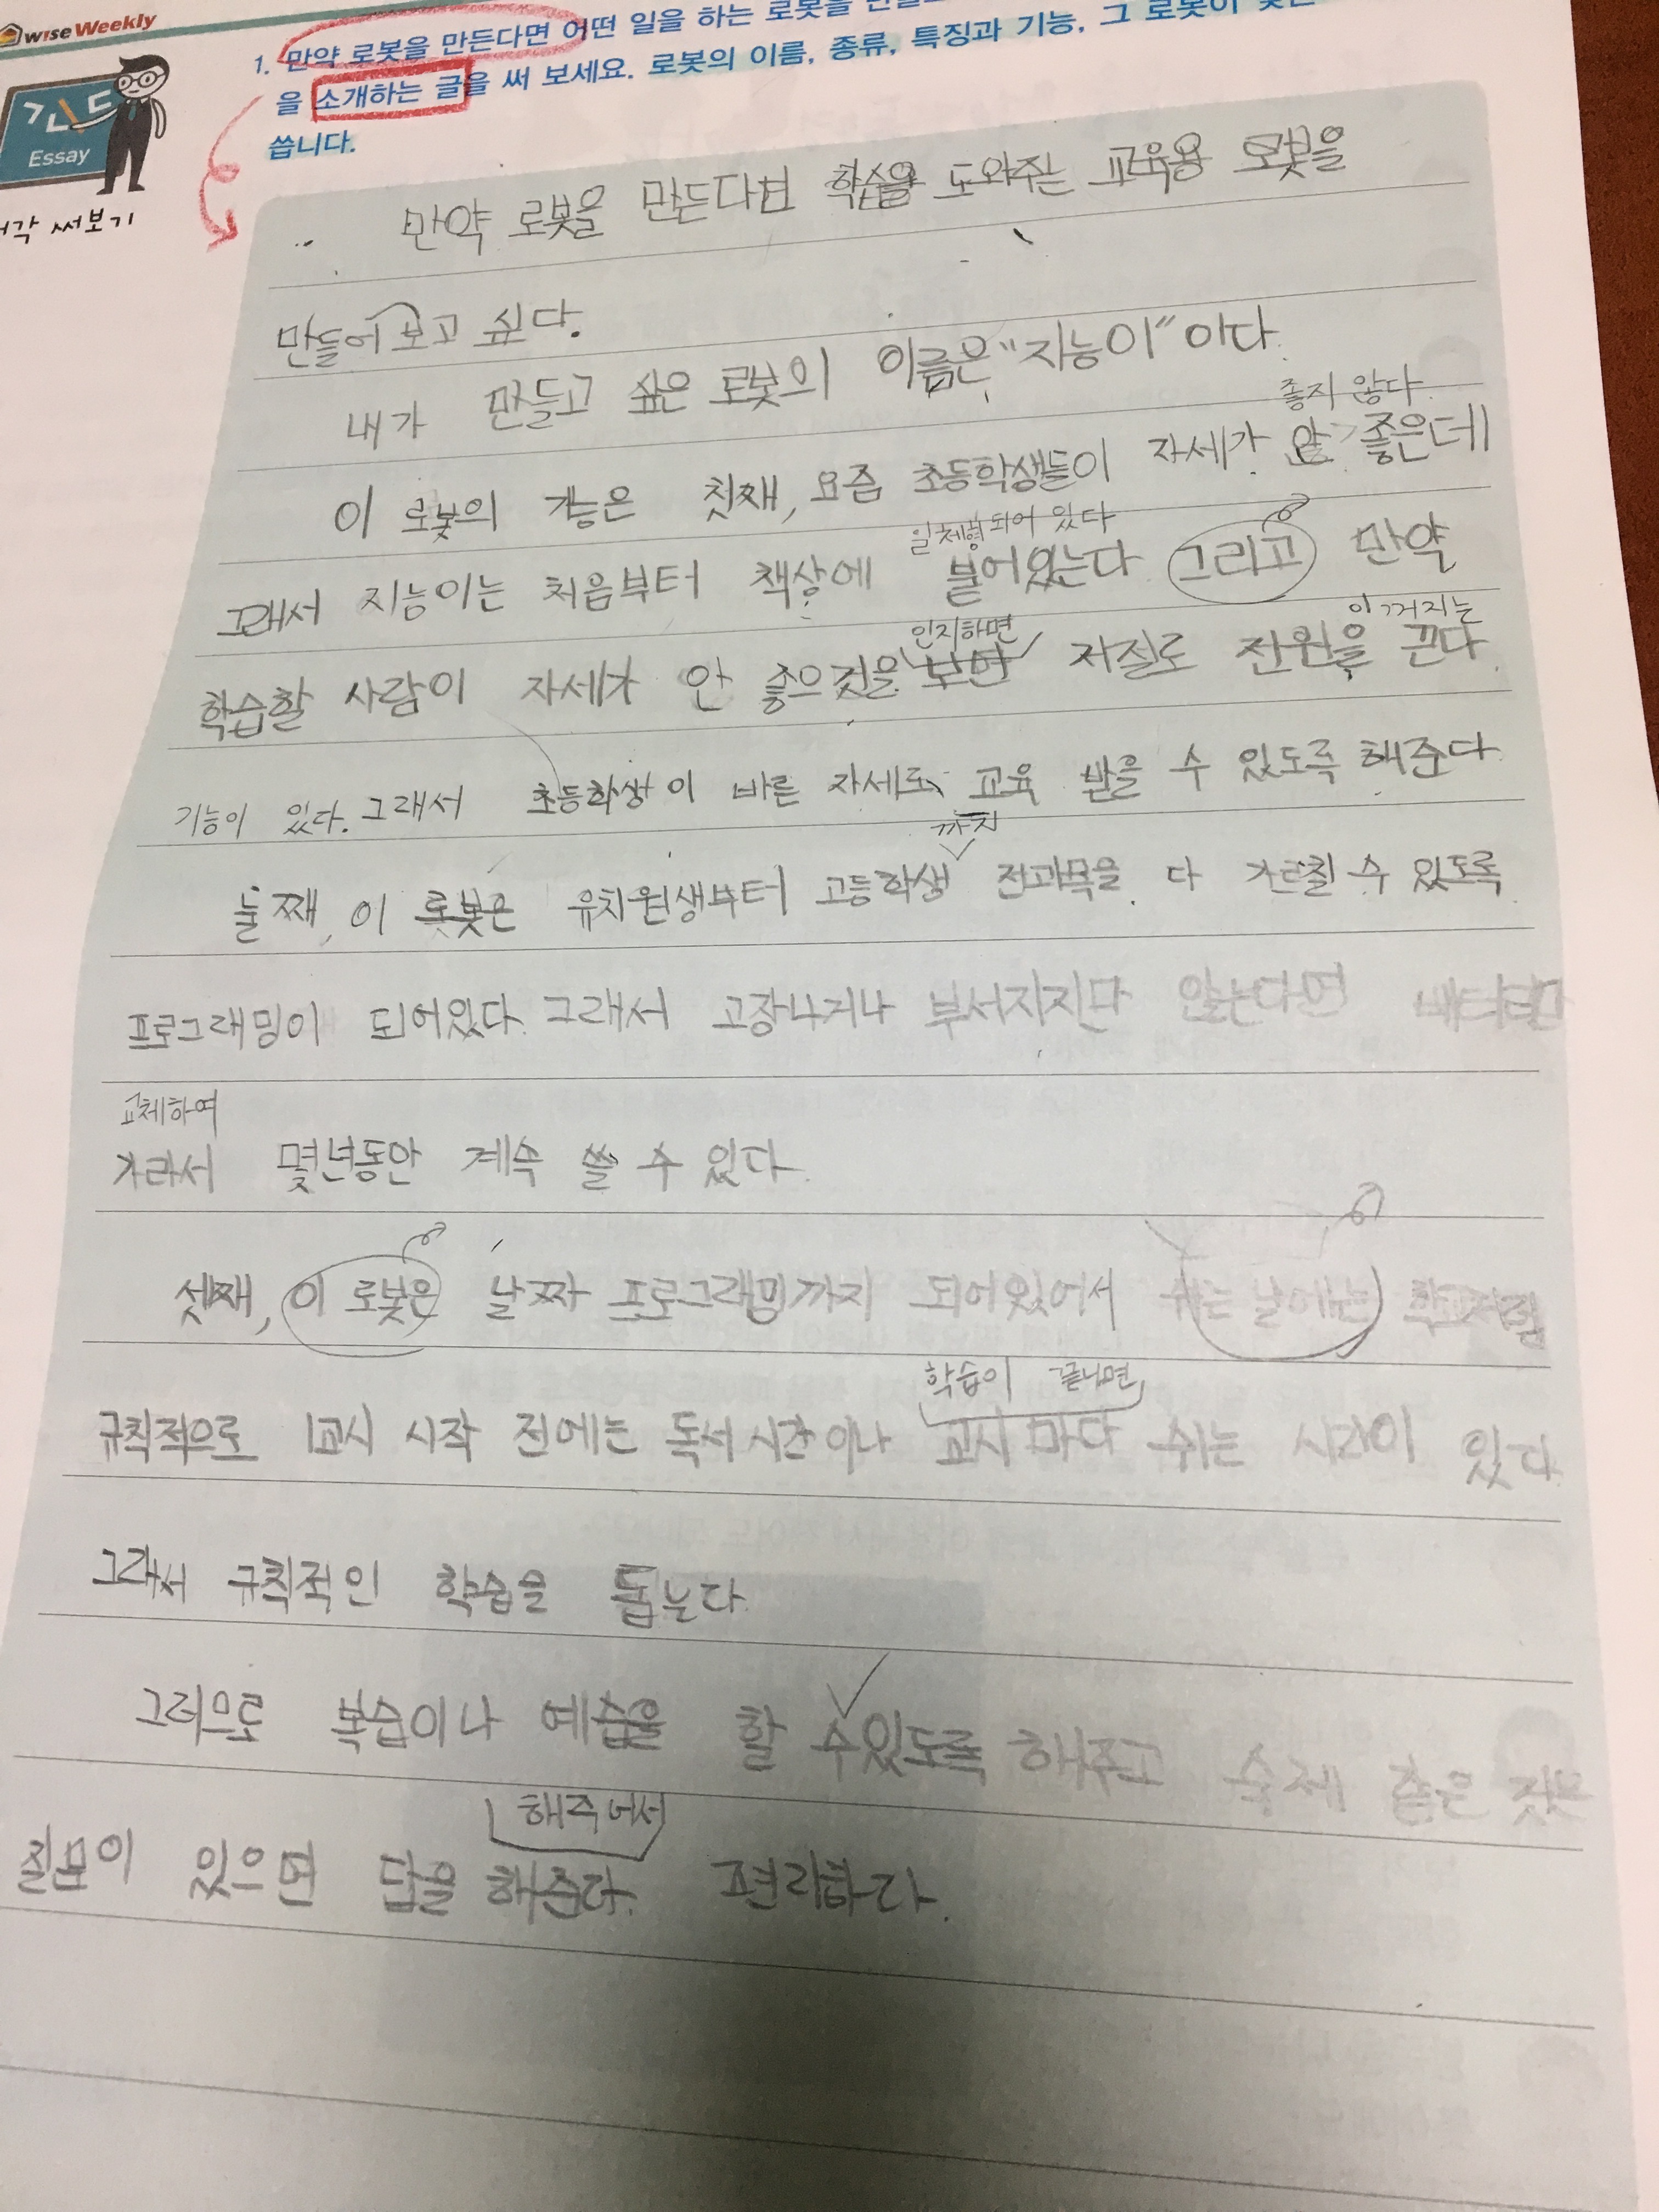 wise Weekly
1. 만약 로봇을 만든다면 어떤 일을 하는 로봇을
을 소개하는 글을 써 보세요. 로봇의 이름, 종류, 특징과 기능, 그 로봇이
씁니다.
Essay
써보기
만약 로봇을 만든다면 학습을 도와주는 교육용 로봇을
만들어보고 싶다.
내가 만들고 싶은 로봇의 이름은 "지능이"이다.
좋지 않다
이 로봇의 기능은 첫째, 요즘 초등학생들이 자세가 안 좋은데
일체형 되어 있다
그래서 지능이는 처음부터 책상에 붙어있는다 그리고 만약
인지하면 이 꺼지는
학습할 사람이 자세가 안 좋으것을 보면 저절로 전원을 끈다.
기능이 있다. 그래서 초등학생이 바른 자세로 교육 받을 수 있도록 해준다
까지
둘째, 이 로봇은 유치원생부터 고등학생 전과목을 다 가르칠 수 있도록
프로그래밍이 되어있다. 그래서 고장나거나 부서지지만 않는다면 배터리만
교체하여
가라서 몇년동안 계속 쓸 수 있다.
셋째, 이 로봇은 날짜 프로그래밍까지 되어있어서 쉬는 날에는 학교처럼
학습이 끝나면
규칙적으로 1교시 시작 전에는 독서 시간이나 교시 마다 쉬는 시간이 있다
그래서 규칙적인 학습을 돕는다.
그러므로 복습이나 예습을 할 수있도록 해주고 숙제 같은 것은
해주어서
질문이 있으면 답을 해준다. 편리하다.